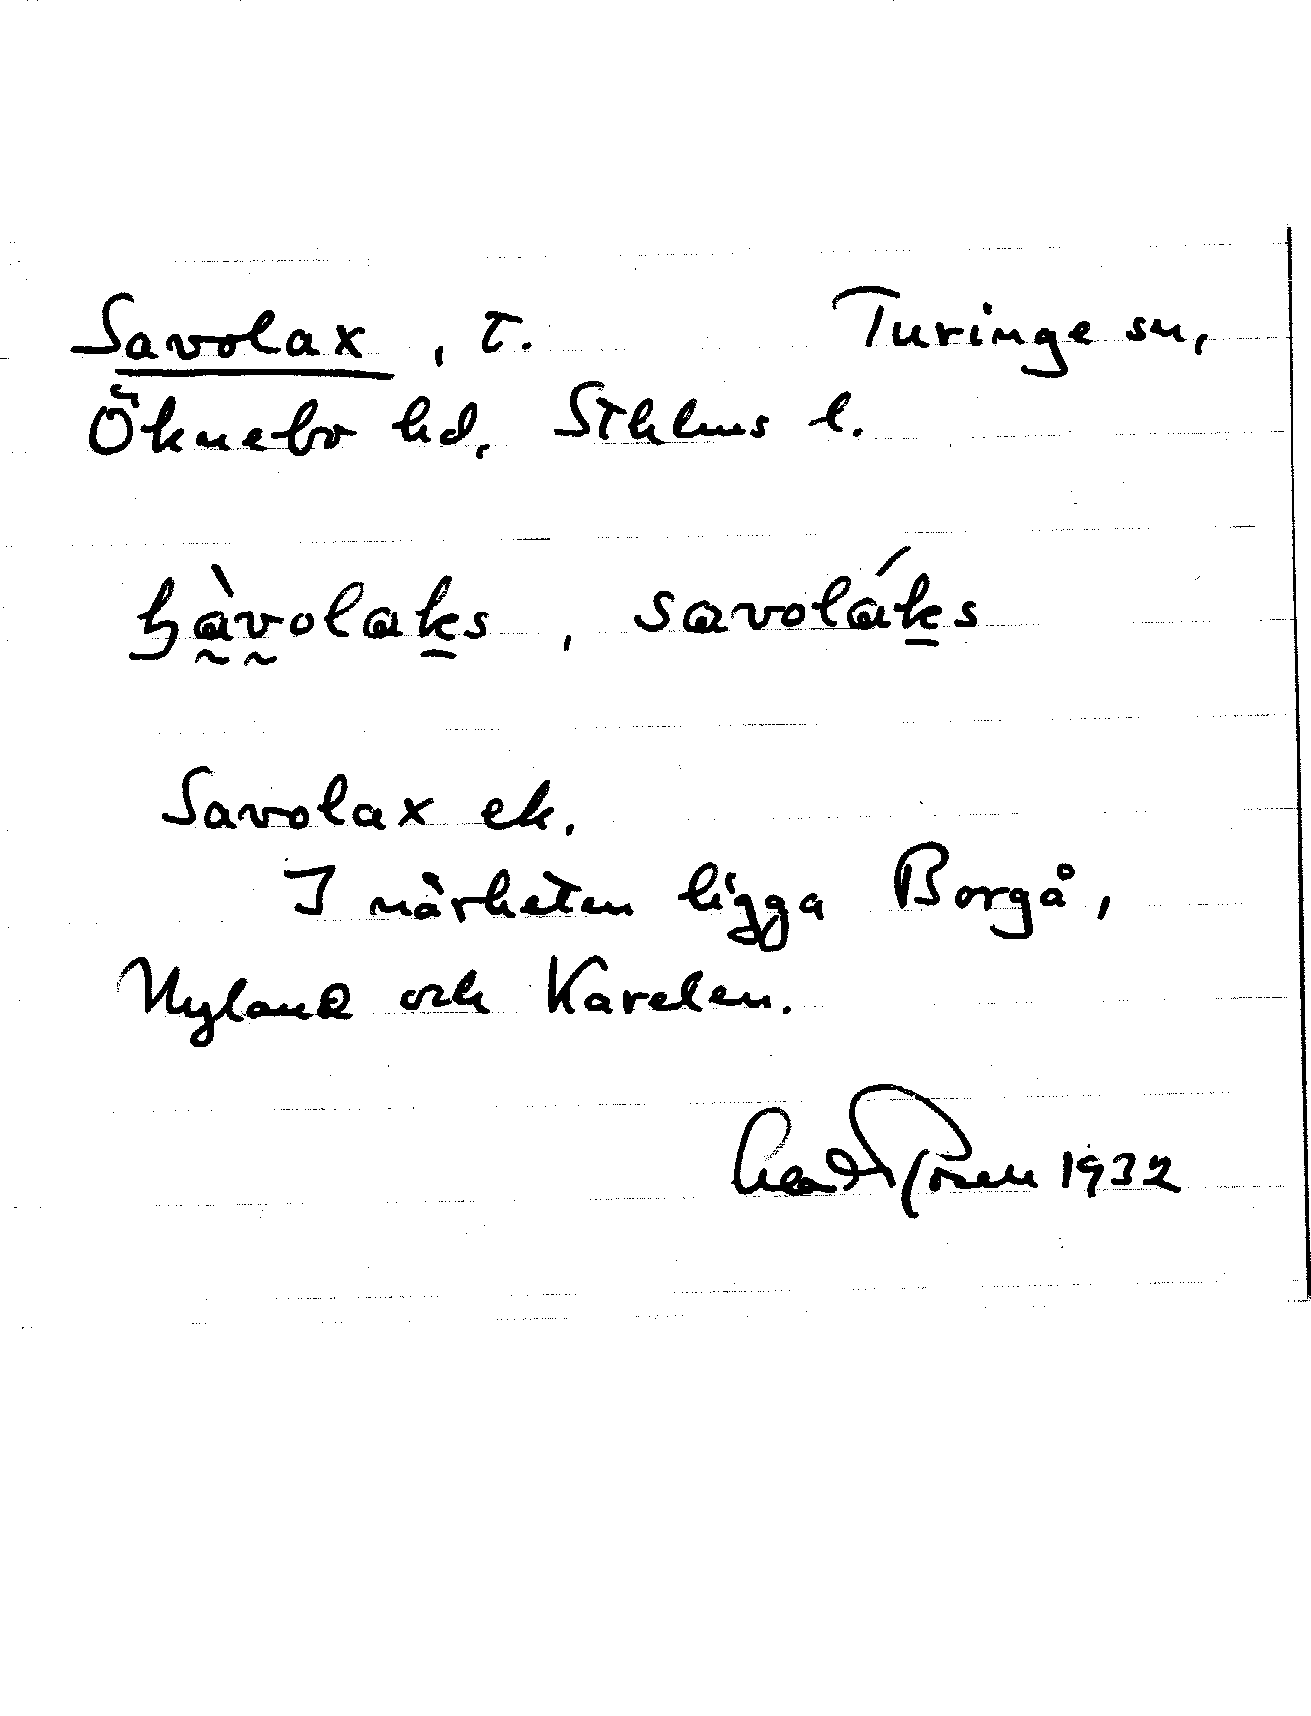 Savolax, t. Turinge sn,
Öknebo hd, Sthlms l.
sàvolaks, savoláks
Savolax ek.
I närheten ligga Borgå,
Nyland och Karelen.
1932